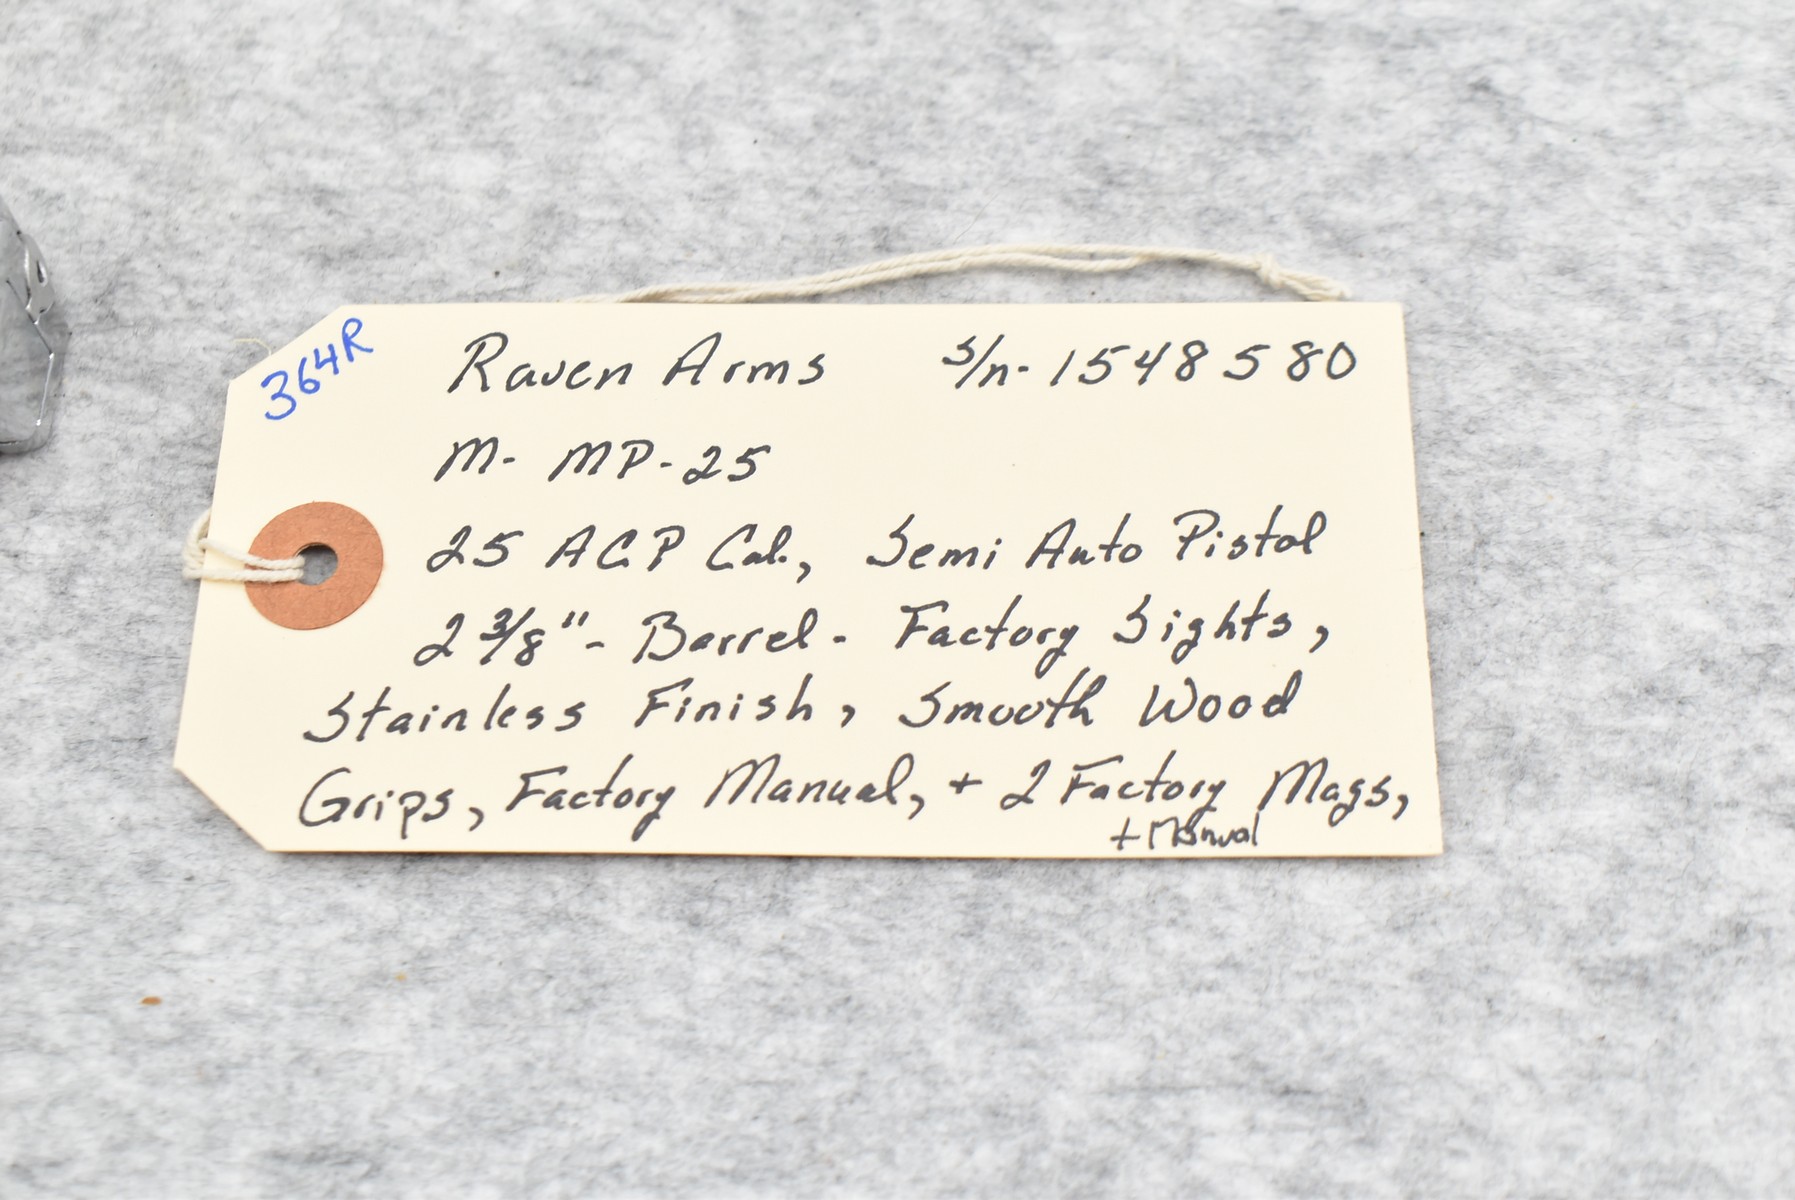 364R
Raven Arms s/n- 1548580
M- MP-25
25 ACP Cal., Semi Auto Pistol
2 3/8"- Barrel- Factory Sights,
Stainless Finish, Smooth Wood
Grips, Factory Manual, + 2 Factory Mags,
+ Manual